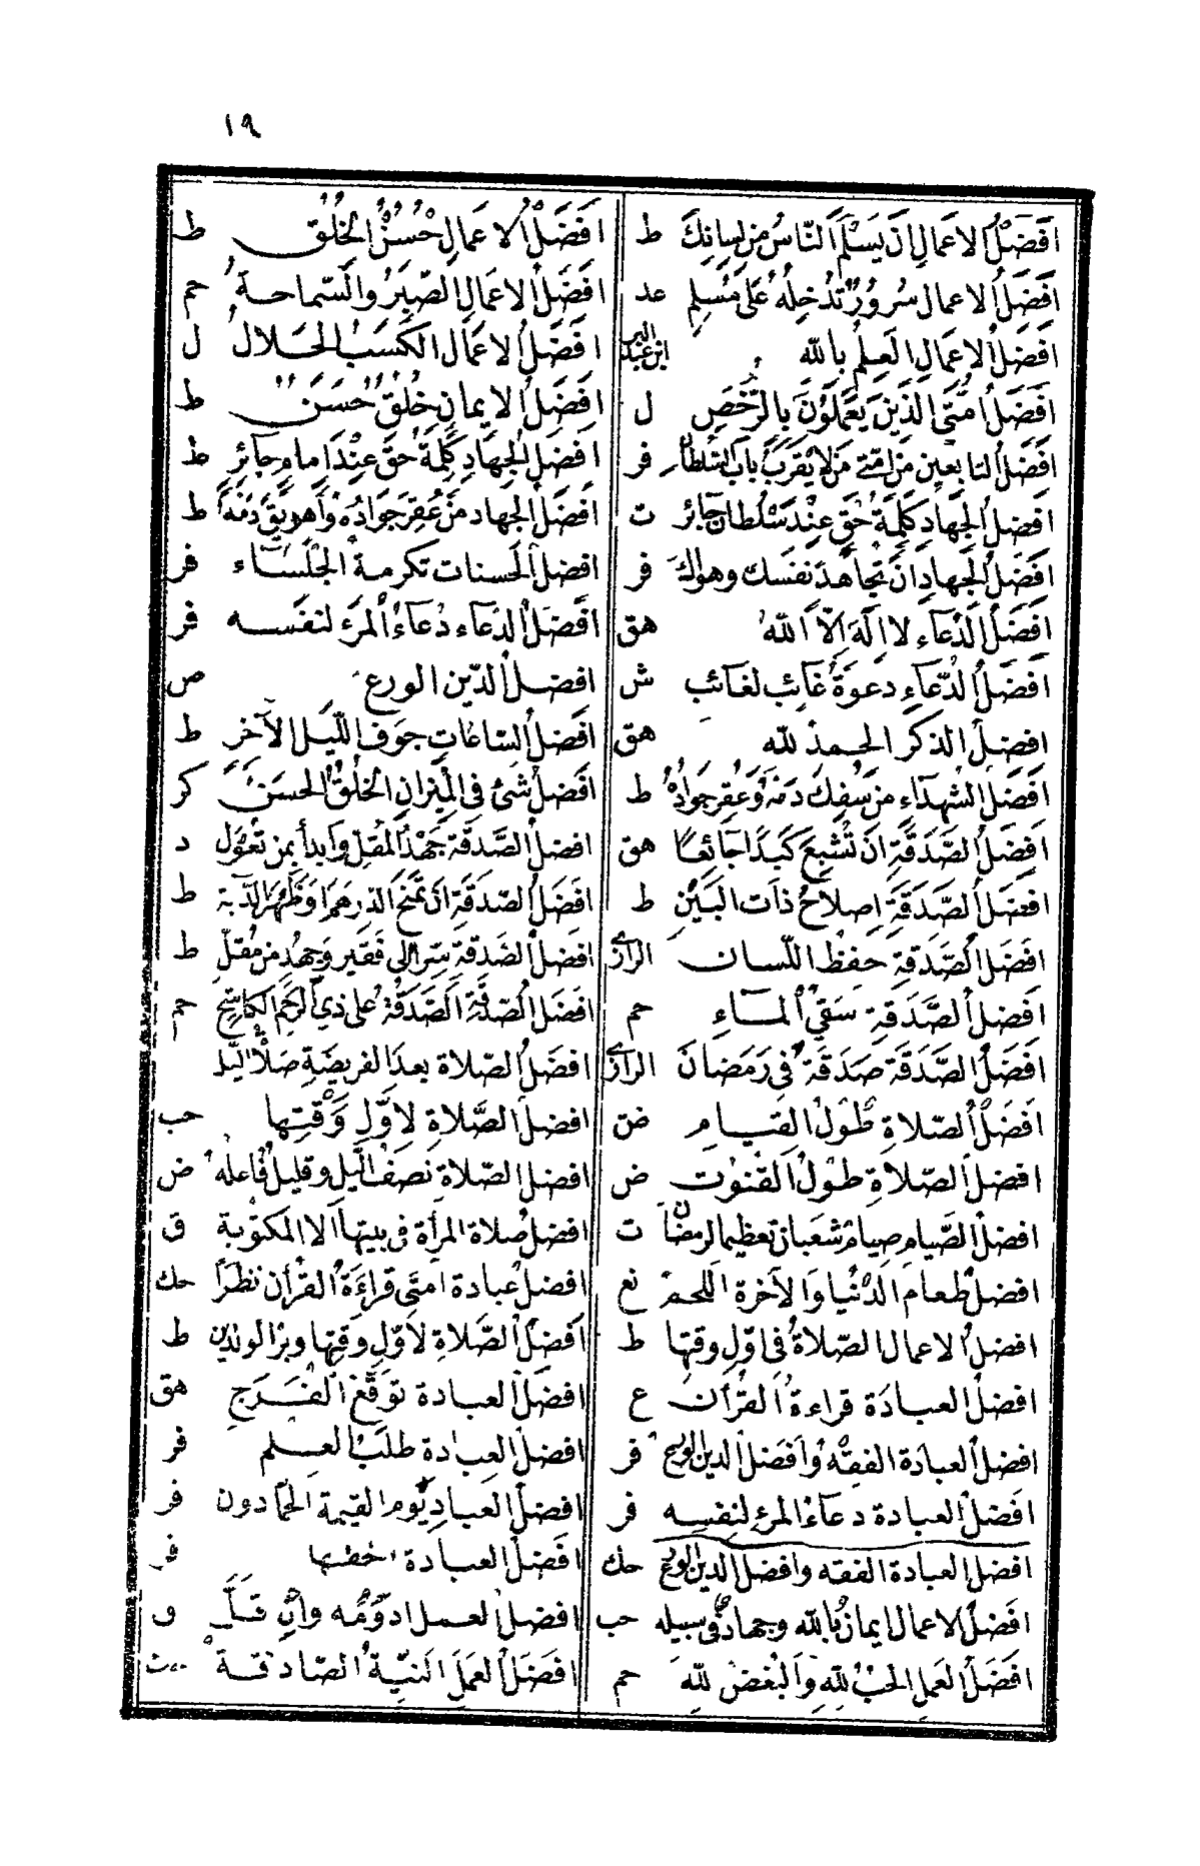 ١٩
افضل الاعمال ان يسلم الناس من لسانك ط
افضل الاعمال سرور تدخله على مسلم عد
افضل الاعمال العلم بالله ابن عبد البر
افضل امتى الذين يعملون بالرخص ل
افضل التابعين من امتى من لا يقرب باب السلطان فر
افضل الجهاد كلمة حق عند سلطان جائر ت
افضل الجهاد ان تجاهد نفسك وهواك فر
افضل الدعاء لا اله الا الله هق
افضل الدعاء دعوة غائب لغائب ش
افضل الذكر الحمد لله هق
افضل الشهداء من سفك دمه وعقر جواده ط
افضل الصدقة ان تشبع كبدا جائعا هق
افضل الصدقة اصلاح ذات البين ط
افضل الصدقة حفظ اللسان الرازى
افضل الصدقة سقى المآء حم
افضل الصدقة صدقة فى رمضان الرازى
افضل الصلاة طول القيام ض ق
افضل الصلاة طول القنوت ض
افضل الصيام صيام شعبان تعظيما لرمضان ت
افضل طعام الدنيا والآخرة اللحم نع
افضل الاعمال الصلاة فى اول وقتها ط
افضل العبادة قراءة القرأن ع
افضل العبادة الفقه وافضل الدين الورع فر
افضل العبادة دعاء المرء لنفسه فر
افضل العبادة الفقه وافضل الدين الورع حك
افضل الاعمال ايمان بالله وجهاد فى سبيله حب
افضل العمل الحب لله والبغض لله حم
افضل الاعمال حسن الخلق ط
افضل الاعمال الصبر والسماحة حم
افضل الاعمال الكسب الحلال ل
افضل الايمان خلق حسن ط
افضل الجهاد كلمة حق عند امام جائر ط
افضل الجهاد من عقر جواده واهريق دمه ط
افضل الحسنات تكرمة الجلساء فر
افضل الدعاء دعاء المرء لنفسه فر
افضل الدين الورع ص
افضل الساعات جوف الليل الآخر ط
افضل شئ فى الميزان الخلق الحسن كر
افضل الصدقة جهد المقل وابدأ بمن تعول د
افضل الصدقة ان تمنح الدرهم او ظهر الدابة ط
افضل الصدقة سر الى فقير وجهد من مقل ط
افضل الصدقة الصدقة على ذى الرحم الكاشح حم
افضل الصلاة بعد الفريضة صلاة الليل
افضل الصلاة لاول وقتها حب
افضل الصلاة نصف الليل وقليل فاعله ض
افضل صلاة المرأة فى بيتها الا المكتوبة ق
افضل عبادة امتى قراءة القرأن نظرا حك
افضل الصلاة لاول وقتها وبر الوالدين ط
افضل العبادة توقع الفرج هق
افضل العبادة طلب العلم فر
افضل العباد يوم القيمة الحمادون فر
افضل العبادة اخفها فر
افضل العمل ادومه وان قل ق
افضل العمل النية الصادقة ت